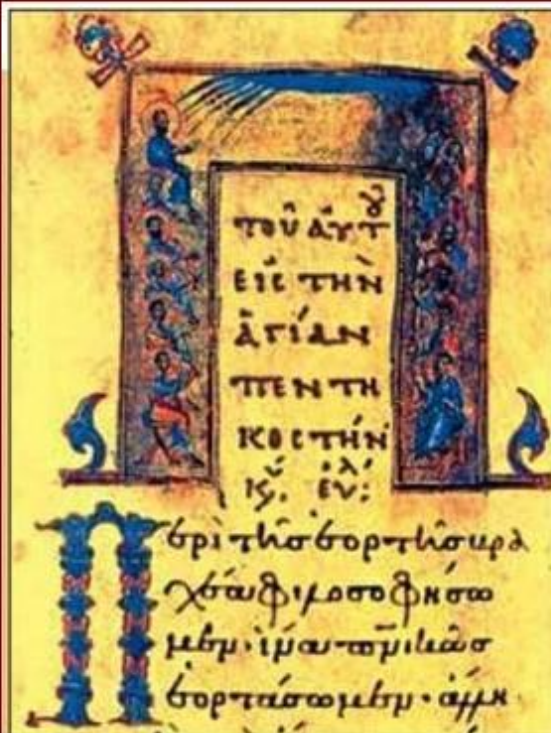 ΤΟῦ ἈΥΤȣ
ΕἸϹ ΤῊΝ
ἉΓΊΑΝ
ΠΕΝΤΗ
ΚΟϹΤΉΝ
Περὶ τῆς ἑορτῆς βρα
χέα φιλοσοφήσω
μεν· ἵνα πνικῶς
ἑορτάσωμεν· ἄλλη